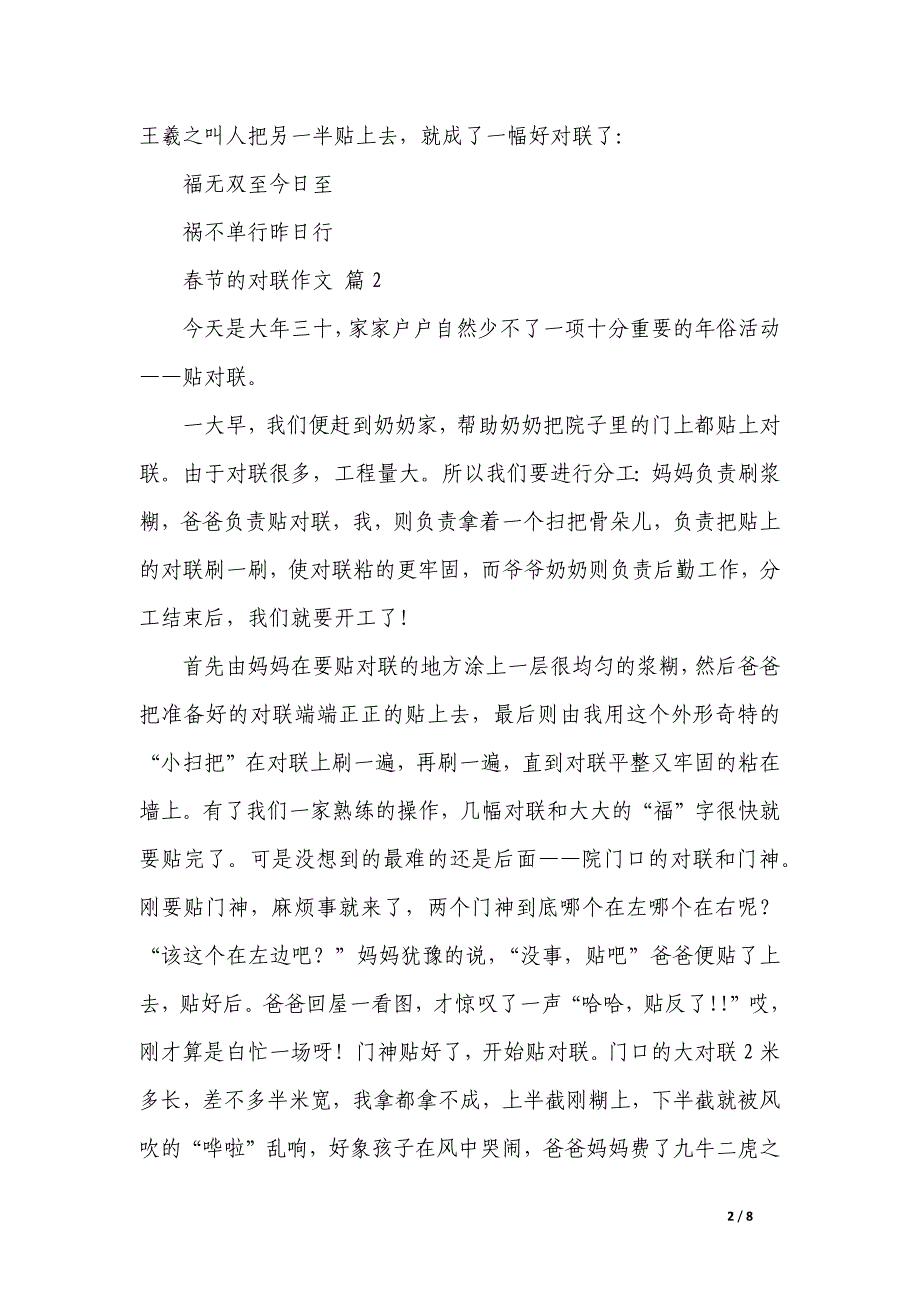 王羲之叫人把另一半贴上去，就成了一幅好对联了：
福无双至今日至
祸不单行昨日行
春节的对联作文 篇2
今天是大年三十，家家户户自然少不了一项十分重要的年俗活动
——贴对联。
一大早，我们便赶到奶奶家，帮助奶奶把院子里的门上都贴上对
联。由于对联很多，工程量大。所以我们要进行分工：妈妈负责刷浆
糊，爸爸负责贴对联，我，则负责拿着一个扫把骨朵儿，负责把贴上
的对联刷一刷，使对联粘的更牢固，而爷爷奶奶则负责后勤工作，分
工结束后，我们就要开工了！
首先由妈妈在要贴对联的地方涂上一层很均匀的浆糊，然后爸爸
把准备好的对联端端正正的贴上去，最后则由我用这个外形奇特的
“小扫把”在对联上刷一遍，再刷一遍，直到对联平整又牢固的粘在
墙上。有了我们一家熟练的操作，几幅对联和大大的“福”字很快就
要贴完了。可是没想到的最难的还是后面——院门口的对联和门神。
刚要贴门神，麻烦事就来了，两个门神到底哪个在左哪个在右呢？
“该这个在左边吧？”妈妈犹豫的说，“没事，贴吧”爸爸便贴了上
去，贴好后。爸爸回屋一看图，才惊叹了一声“哈哈，贴反了！！”哎，
刚才算是白忙一场呀！门神贴好了，开始贴对联。门口的大对联2米
多长，差不多半米宽，我拿都拿不成，上半截刚糊上，下半截就被风
吹的“哗啦”乱响，好象孩子在风中哭闹，爸爸妈妈费了九牛二虎之
2 / 8